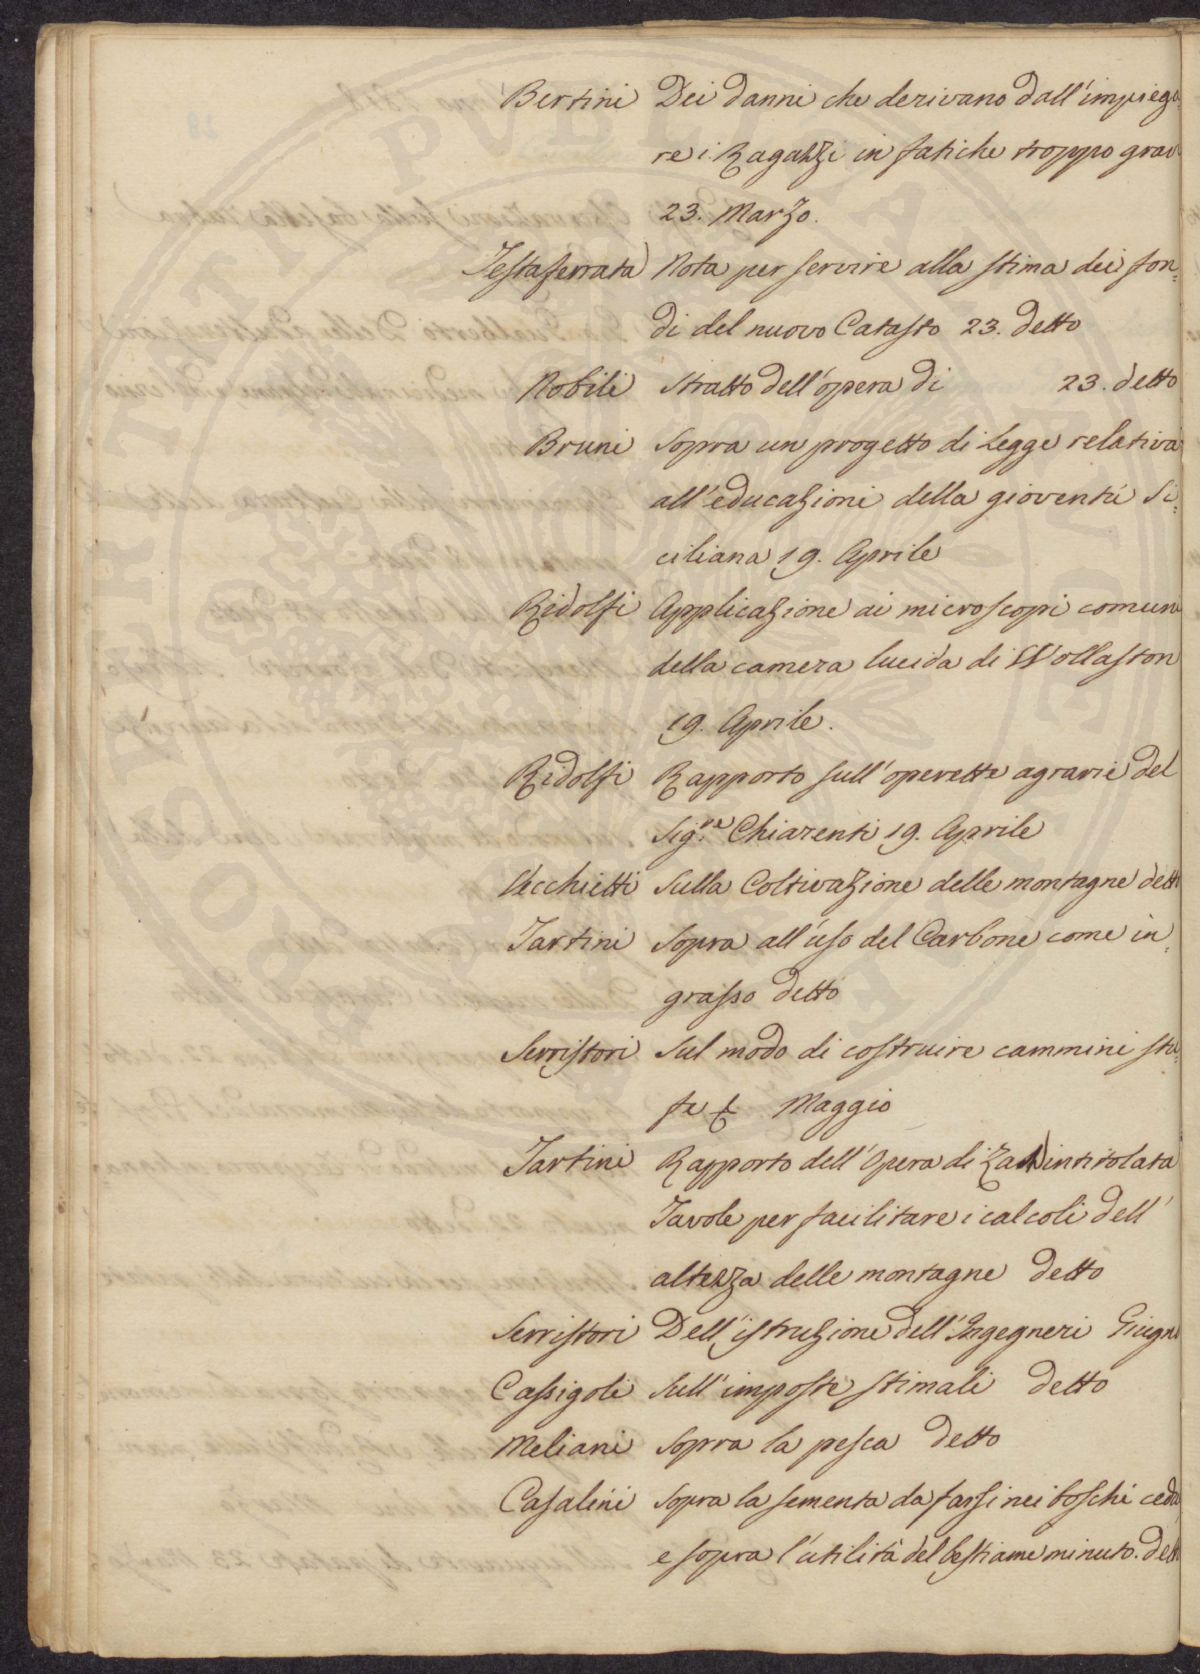 Bertini Dei danni che derivano dall'impiega=
re i Ragazzi in fatiche troppo gravi
23. Marzo.
Testaferrata Nota per servire alla stima dei fon=
di del nuovo Catasto 23. detto
Nobili Stratto dell'opera di 23. detto
Bruni Sopra un progetto di Legge relativa
all'educazioni della gioventù Si=
ciliana 19. Aprile
Ridolfi Applicazione ai microscopi comuni
della camera lucida di Wollaston
19. Aprile.
Ridolfi Rapporto sull'operette agrarie del
Sig.re Chiarenti 19. Aprile
Vecchietti Sulla Coltivazione delle montagne detto
Tartini Sopra all'uso del Carbone come in=
grasso detto
Serristori Sul modo di costruire cammini stu=
fe Maggio
Tartini Rapporto dell'Opera di Zach intitolata
Tavole per facilitare i calcoli dell'
altezza delle montagne detto
Serristori Dell'istruzione dell'Ingegneri Giugno
Cassigoli Sull'imposte stimali detto
Meliani Sopra la pesca detto
Casalini Sopra la sementa da farsi nei boschi cedui
e sopra l'utilità del bestiame minuto. detto